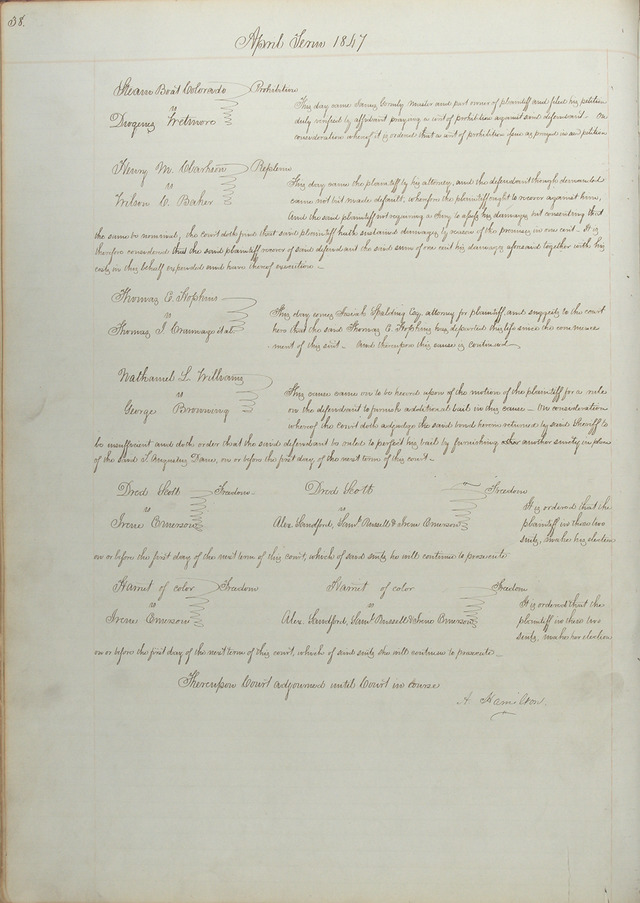 38.
April Term 1847
Steam Boat Colorado Prohibition
vs
Diogenes Wetmore
This day came James Gormly Master and part owner of plaintiff and filed his petition
duly verified by affidavit praying a writ of prohibition against said defendant - On
consideration whereof it is ordered that a writ of prohibition issue as prayed in said petition
Henry M. Clarkson Replevin
vs
Wilson C. Baker
This day came the plaintiff by his attorney, and the defendant though demanded
came not but made default, wherefore the plaintiff ought to recover against him,
And the said plaintiff not requiring a Jury to assess his damages, but consenting that
the same be nominal, the Court doth find that said plaintiff hath sustained damages by reason of the premises in one cent - It is
therefore considered that the said plaintiff recover of said defendant the said sum of one cent his damages aforesaid together with his
costs in this behalf expended and have thereof execution -
Thomas E. Hopkins
vs
Thomas J. et al
This day comes Josiah Spalding Esq. attorney for plaintiff and suggests to the court
here that the said Thomas E. Hopkins has departed this life since the commence
ment of this suit - And thereupon this cause is continued
Nathaniel L. Williams
vs
George Browning
This cause came on to be heard upon of the motion of the plaintiff for a rule
on the defendant to furnish additional bail in this cause - On consideration
whereof the court doth adjudge the said bond herein returned by said Sheriff to
be insufficient and doth order that the said defendant be ruled to perfect his bail by furnishing other another surety in place
of the said T. Augustus Dane, on or before the first day, of the next term of this court -
Dred Scott Freedom Dred Scott Freedom
vs vs
Irene Emerson Alex. Sandford, Saml. Russell & Irene Emerson
It is ordered that the
plaintiff in these two
suits, make his election
on or before the first day of the next term of this court, which of said suits he will continue to prosecute
Harriet of color Freedom Harriet of color Freedom
vs vs
Irene Emerson Alex. Sandford, Saml. Russell & Irene Emerson
It is ordered that the
plaintiff in these two
suits, make her election
on or before the first day of the next term of this court, which of said suits she will continue to prosecute -
Thereupon Court adjourned until Court in course
A. Hamilton